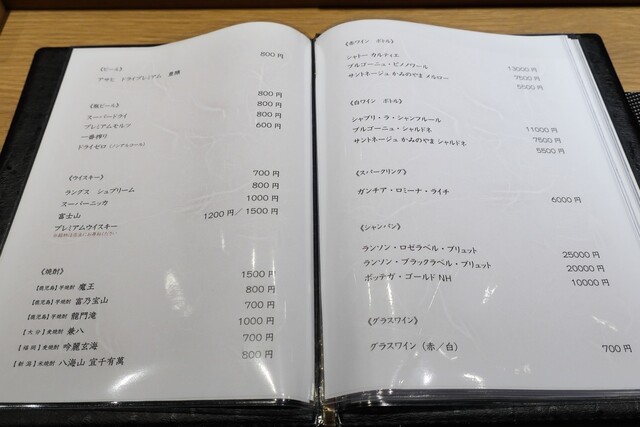 《ビール》
アサヒ ドライプレミアム 豊醸 800円
《瓶ビール》
スーパードライ 800円
プレミアムモルツ 800円
一番搾り 800円
ドライゼロ(ノンアルコール) 600円
《ウイスキー》
ラングス シュプリーム 700円
スーパーニッカ 800円
富士山 1000円
プレミアムウイスキー 1200円/1500円
※銘柄は店主にお尋ねください
《焼酎》
【鹿児島】芋焼酎 魔王 1500円
【鹿児島】芋焼酎 富乃宝山 800円
【鹿児島】芋焼酎 龍門滝 700円
【大分】麦焼酎 兼八 1000円
【福岡】麦焼酎 吟麗玄海 700円
【新潟】米焼酎 八海山 宜千有萬 800円
《赤ワイン ボトル》
シャトー カルティエ 13000円
ブルゴーニュ・ピノノワール 7500円
サントネージュ かみのやま メルロー 5500円
《白ワイン ボトル》
シャブリ・ラ・シャンフルール 11000円
ブルゴーニュ・シャルドネ 7500円
サントネージュ かみのやま シャルドネ 5500円
《スパークリング》
ガンチア・ロミーナ・ライチ 6000円
《シャンパン》
ランソン・ロゼラベル・ブリュット 25000円
ランソン・ブラックラベル・ブリュット 20000円
ボッテガ・ゴールドNH 10000円
《グラスワイン》
グラスワイン(赤/白) 700円